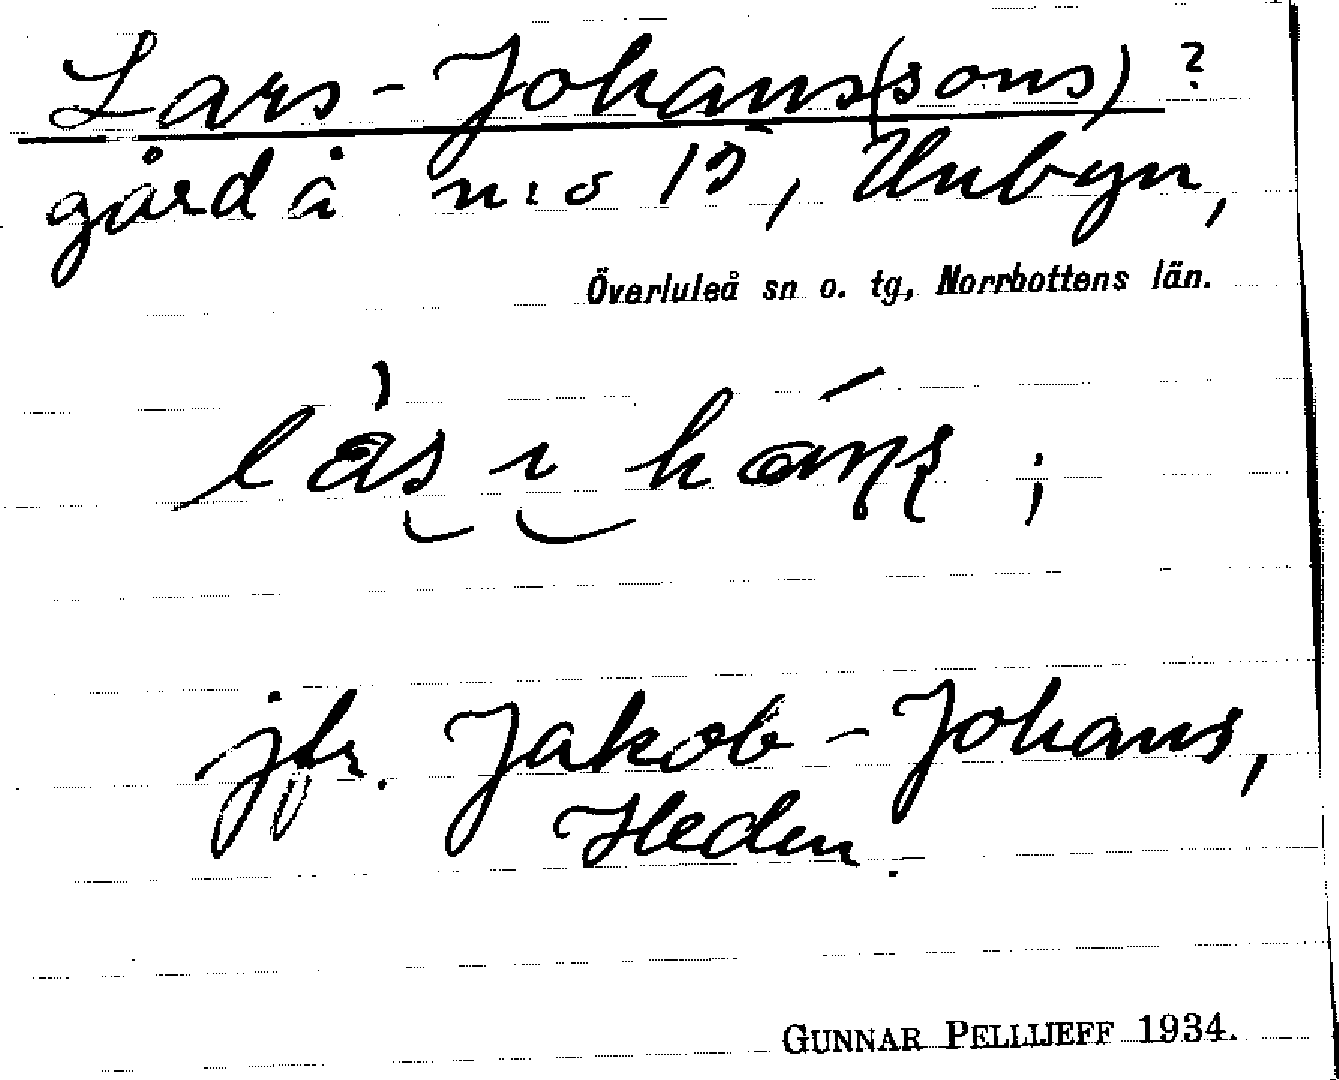 Lars-Johans(sons) ?
gård å n:o 15, Unbyn,
Överluleå sn o. tg, Norrbottens län.
jfr. Jakob-Johans,
Heden.
GUNNAR PELLIJEFF 1934.